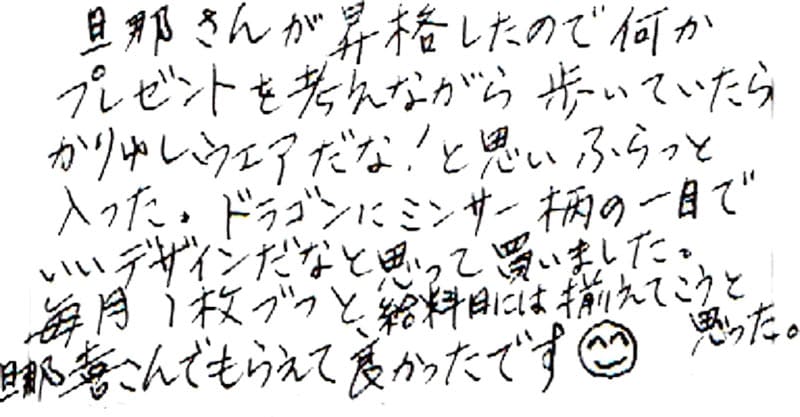 旦那さんが昇格したので何か
プレゼントを考えながら歩いていたら
かりゆしウェアだな!と思いふらっと
入った。ドラゴンにミンサー柄の一目で
いいデザインだなと思って買いました。
毎月1枚づつと、給料日には揃えてこうと
思った。
旦那喜こんでもらえて良かったです